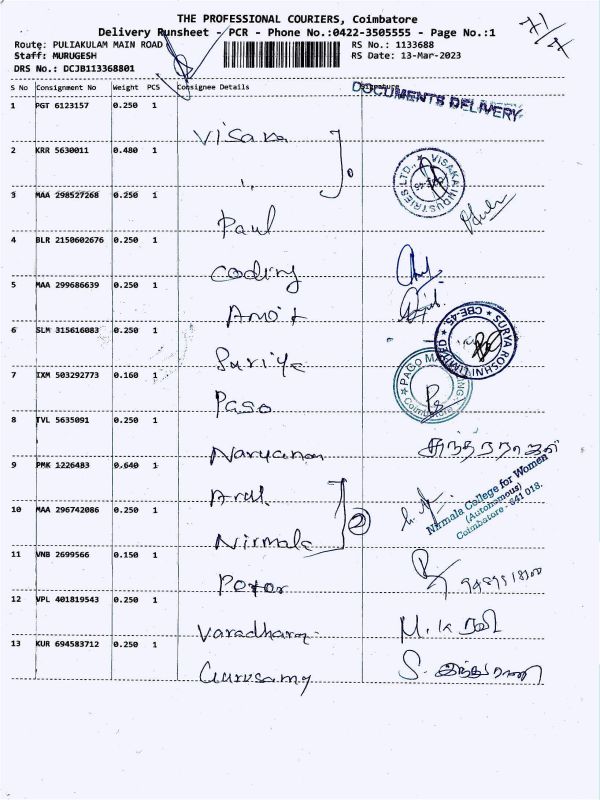 THE PROFESSIONAL COURIERS, Coimbatore
Delivery Runsheet - PCR - Phone No.:0422-3505555 - Page No.:1
Route: PULIAKULAM MAIN ROAD RS No.: 1133688
Staff: MURUGESH RS Date: 13-Mar-2023
DRS No.: DCJB113368801
S No Consignment No Weight PCS Consignee Details Signature
DOCUMENTS DELIVERY
1 PGT 6123157 0.250 1
Visaka
2 KRR 5630011 0.480 1
VISAKA INDUSTRIES LTD., CBE-45
3 MAA 298527268 0.250 1
Paul
4 BLR 2150602676 0.250 1
coding
5 MAA 299686639 0.250 1
Amoit
6 SLM 315616083 0.250 1
SURYA ROSHNI LIMITED CBE-45
Suriya
7 IXM 503292773 0.160 1
Paso
Coimbatore
8 TVL 5635091 0.250 1
Naryanan
9 PMK 1226483 0.640 1
Arul
Nirmala College for Women
(Autonomous)
Coimbatore - 641 018.
10 MAA 296742086 0.250 1
2
Nirmala
11 VNB 2699566 0.150 1
12 VPL 401819543 0.250 1
Varadharaj M.K ரவி
13 KUR 694583712 0.250 1
Gurusamy S. இந்துராணி